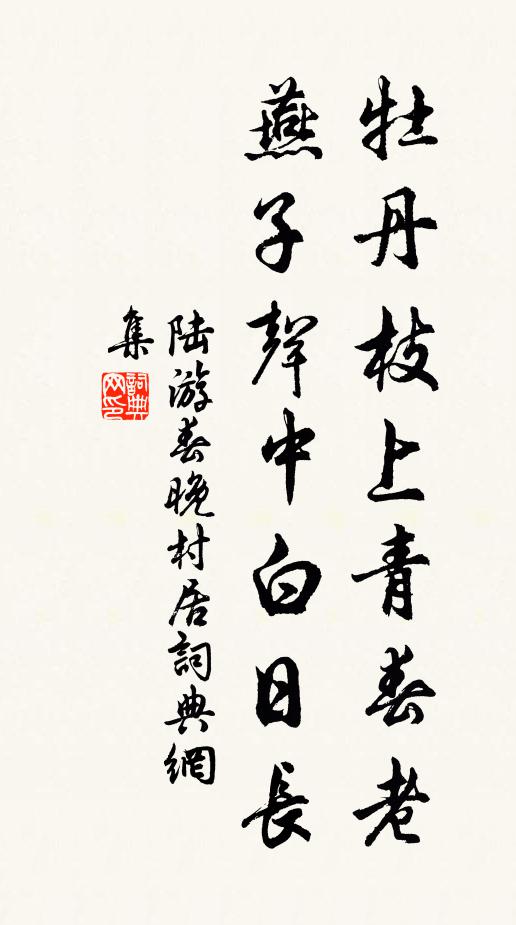 牡丹枝上青春老
燕子聲中白日長
陸游春晚村居詞典網
集
詞典
网印